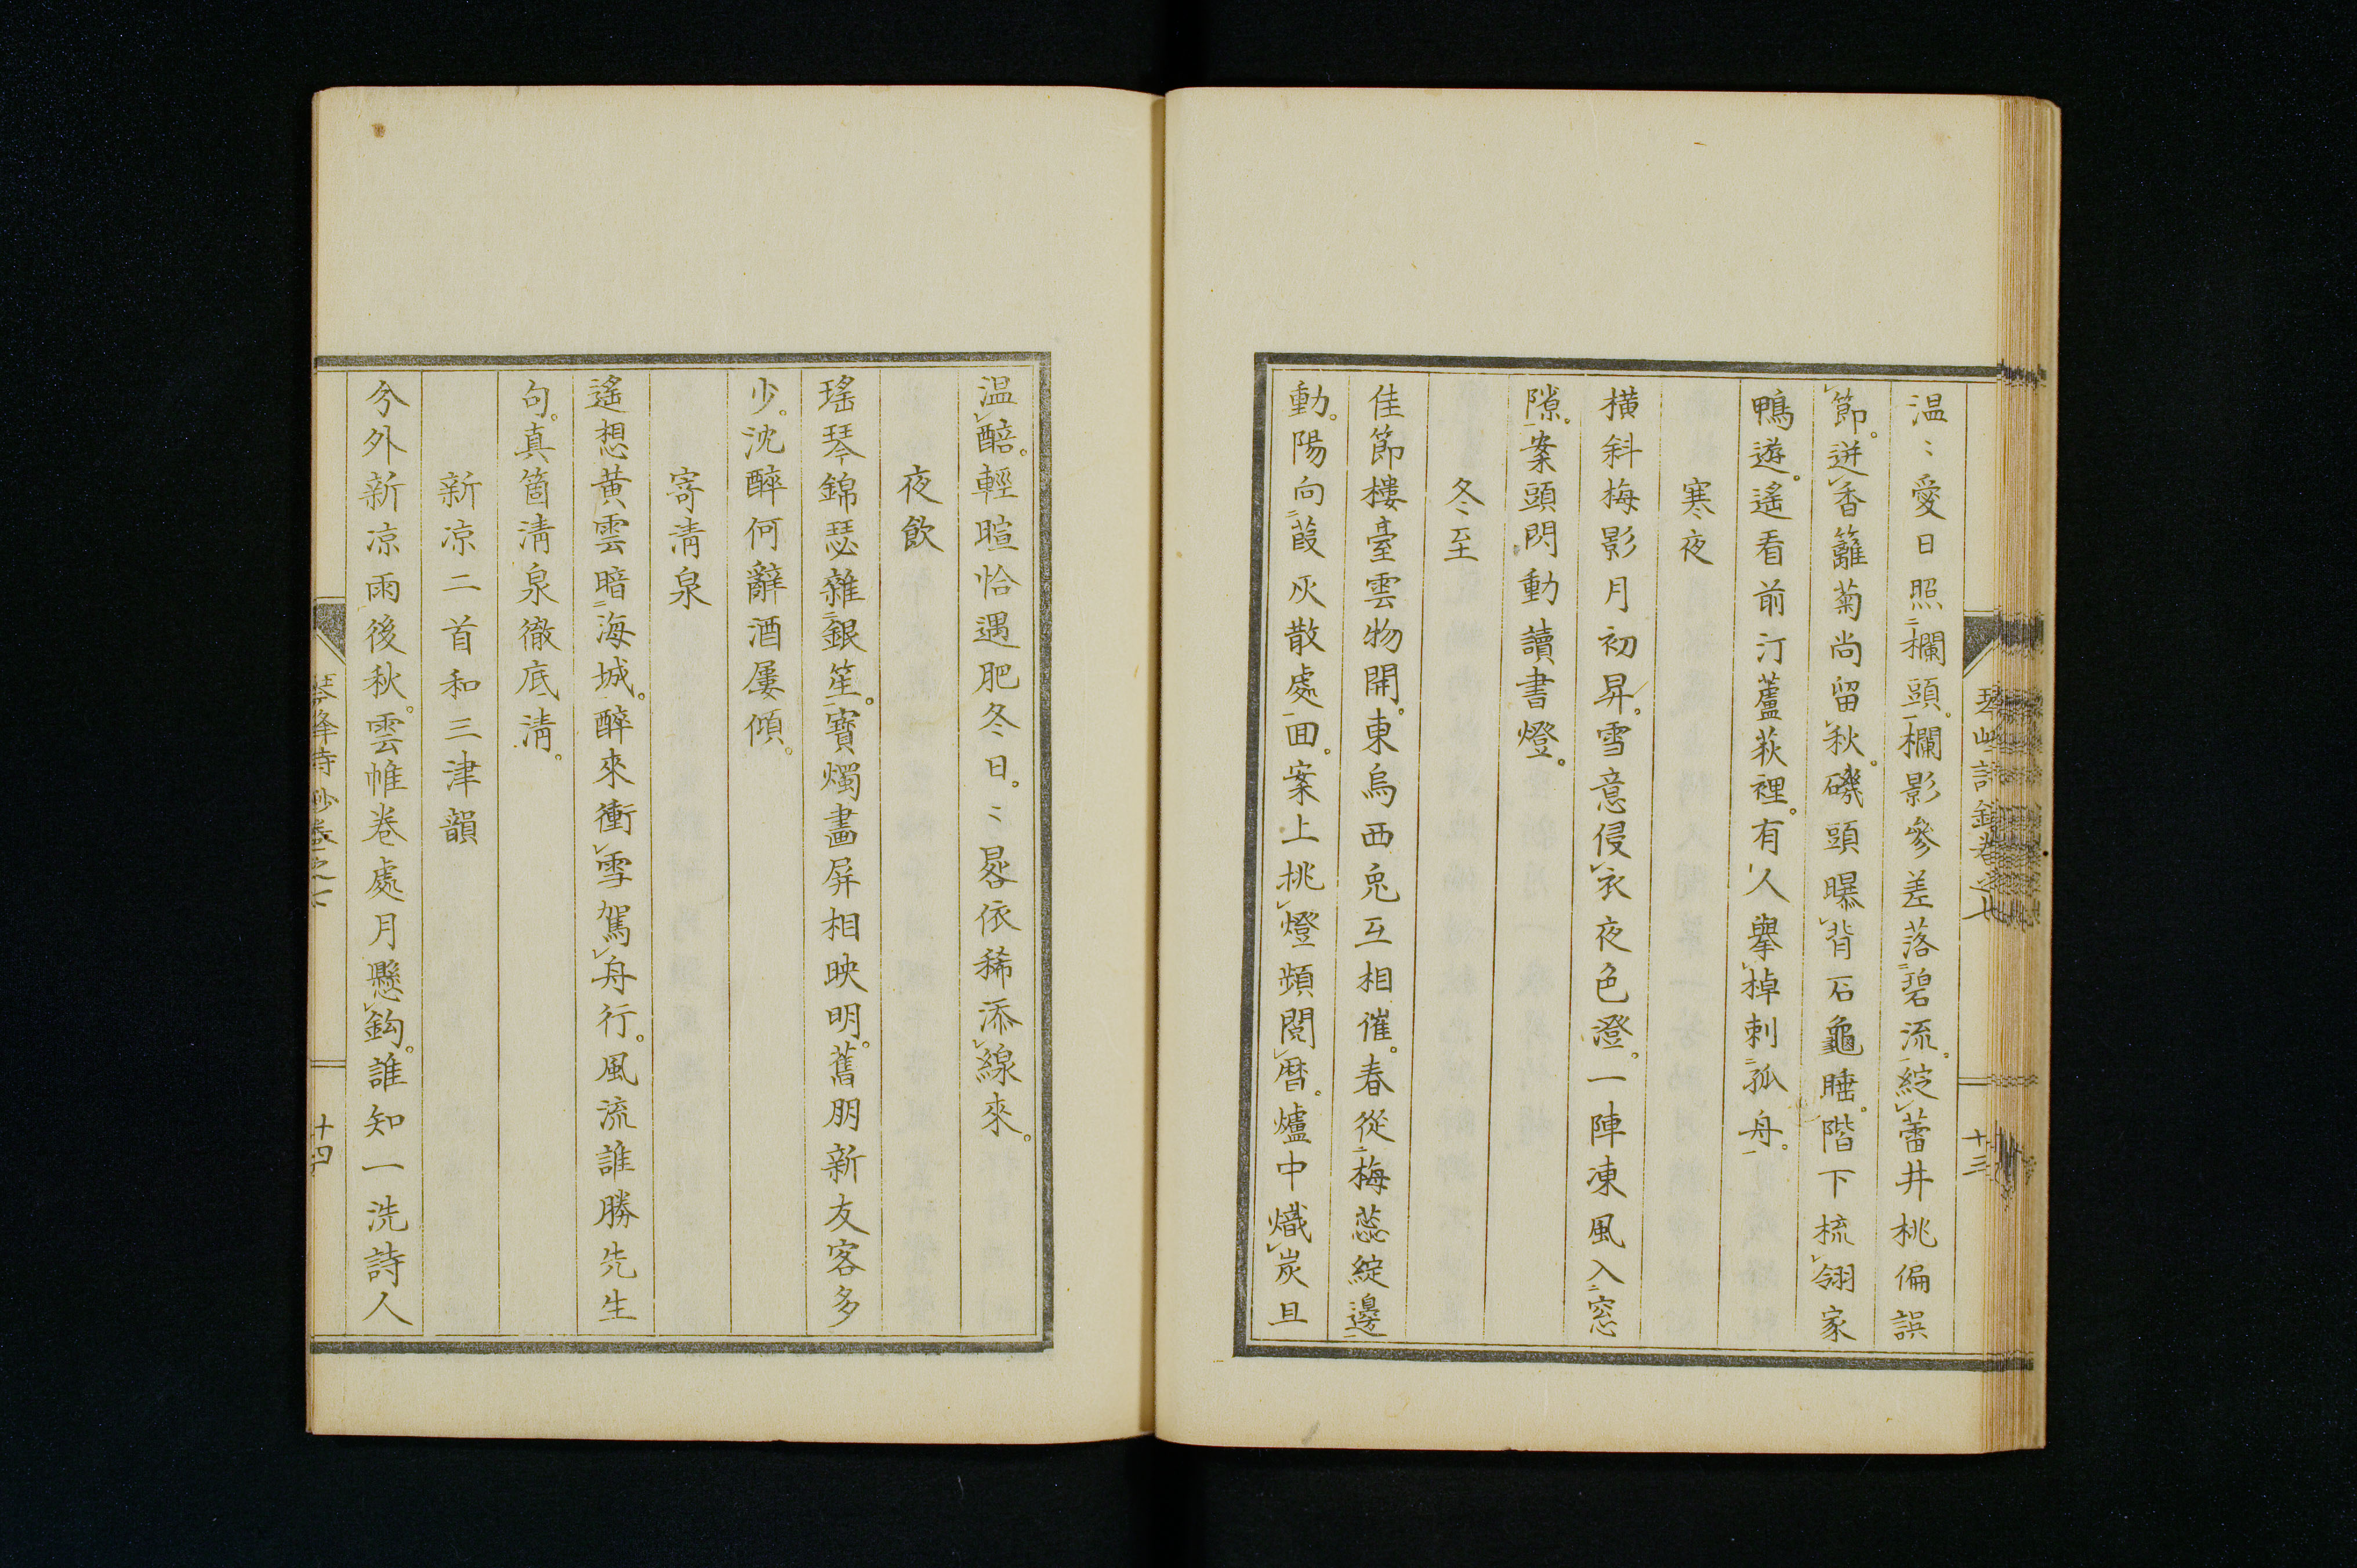 温〻愛日照欄頭。欄影參差落碧流。綻蕾井桃偏誤
節。迸香籬菊尚留秋。磯頭曝背石龜睡。階下梳翎家
鴨遊。遙看前汀蘆荻裡。有人擧棹刺孤舟。
寒夜
橫斜梅影月初昇。雪意侵衣夜色澄。一陣凍風入窓
隙。案頭閃動讀書燈。
冬至
佳節樓臺雲物開。東烏西兎互相催。春從梅蕊綻邊
動。陽向葭灰散處回。案上挑燈頻閱暦。爐中熾炭且
十三
温醅。輕暄恰遇肥冬日。〻晷依稀添線來。
夜飲
瑤琴錦瑟雜銀笙。寶燭畫屏相映明。舊朋新友客多
少。沈醉何辭酒屢傾。
寄淸泉
遙想黄雲暗海城。醉來衝雪駕舟行。風流誰勝先生
句。真箇淸泉徹底淸。
新凉二首和三津韻
分外新凉雨後秋。雲帷卷處月懸鈎。誰知一洗詩人
十四